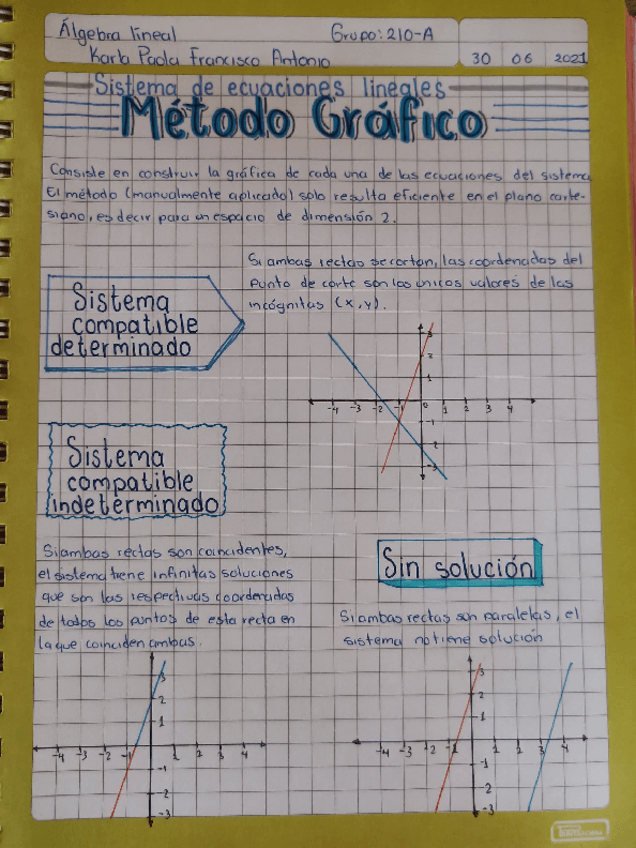 Álgebra lineal Grupo: 210-A
Karla Paola Francisco Antonio 30 06 2021
Sistema de ecuaciones lineales
Método Gráfico
Consiste en construir la gráfica de cada una de las ecuaciones del sistema
El método (manualmente aplicado) solo resulta eficiente en el plano carte-
siano, es decir para un espacio de dimensión 2.
Si ambas rectas se cortan, las coordenadas del
punto de corte son los únicos valores de las
incógnitas (x,y).
Sistema
compatible
determinado
3
2
1
-4 -3 -2 -1 0 1 2 3 4
-1
-2
-3
Sistema
compatible
indeterminado
Si ambas rectas son coincidentes,
el sistema tiene infinitas soluciones
que son las respectivas coordenadas
de todos los puntos de esta recta en
la que coinciden ambas.
Sin solución
Si ambas rectas son paralelas, el
sistema no tiene solución
3
2
1
-4 -3 -2 -1 1 2 3 4
-1
-2
-3
3
2
1
-4 -3 -2 -1 1 2 3 4
-1
-2
-3